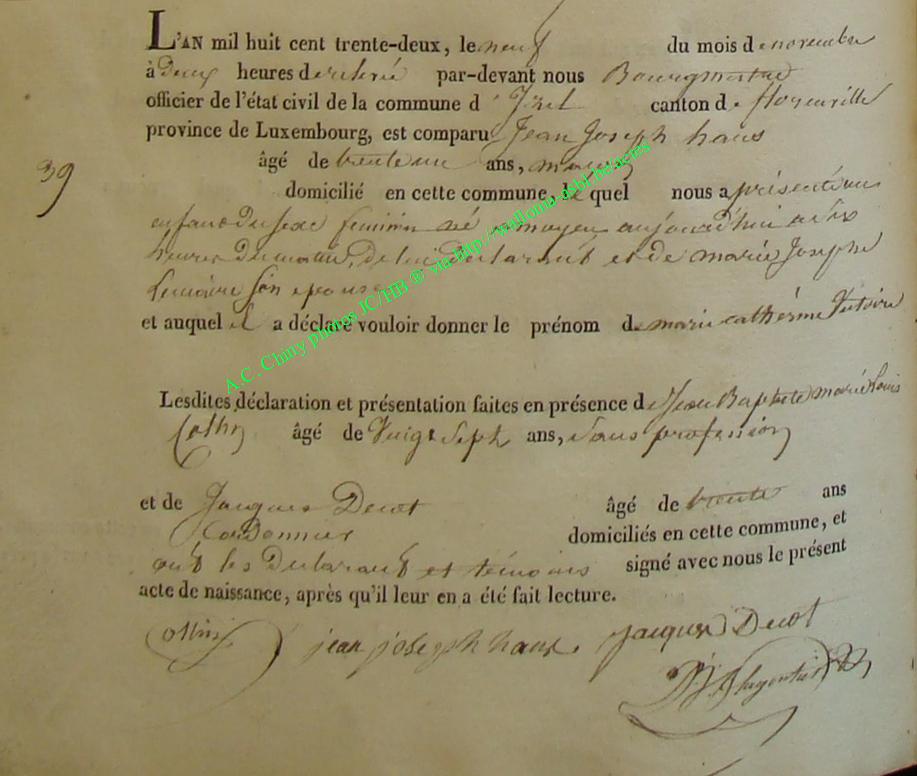 L'AN mil huit cent trente-deux, le neuf du mois de novembre
à deux heures de relevée par-devant nous Bourgmestre
officier de l'état civil de la commune d' Izel canton de florenville
province de Luxembourg, est comparu Jean Joseph haus
39
âgé de trente un ans,
domicilié en cette commune, le quel nous a présenté un
enfant du sexe féminin né aujourd'hui a dix
heures du matin, de lui déclarant et de marie Joseph
Lemaire son epouse
et auquel il a déclaré vouloir donner le prénom de marie catherine Victoire
A.C. Chiny photos JC/HB ® via http://wallonia-asbl.be/actes
Lesdites déclaration et présentation faites en présence de Jean Baptiste marie Louis
âgé de vingt Sept ans, Sans profession
et de Jacques Decot âgé de trente ans
Cordonnier domiciliés en cette commune, et
ont les Déclarant et témoins signé avec nous le présent
acte de naissance, après qu'il leur en a été fait lecture.
jean joseph haus. Jacques Decot